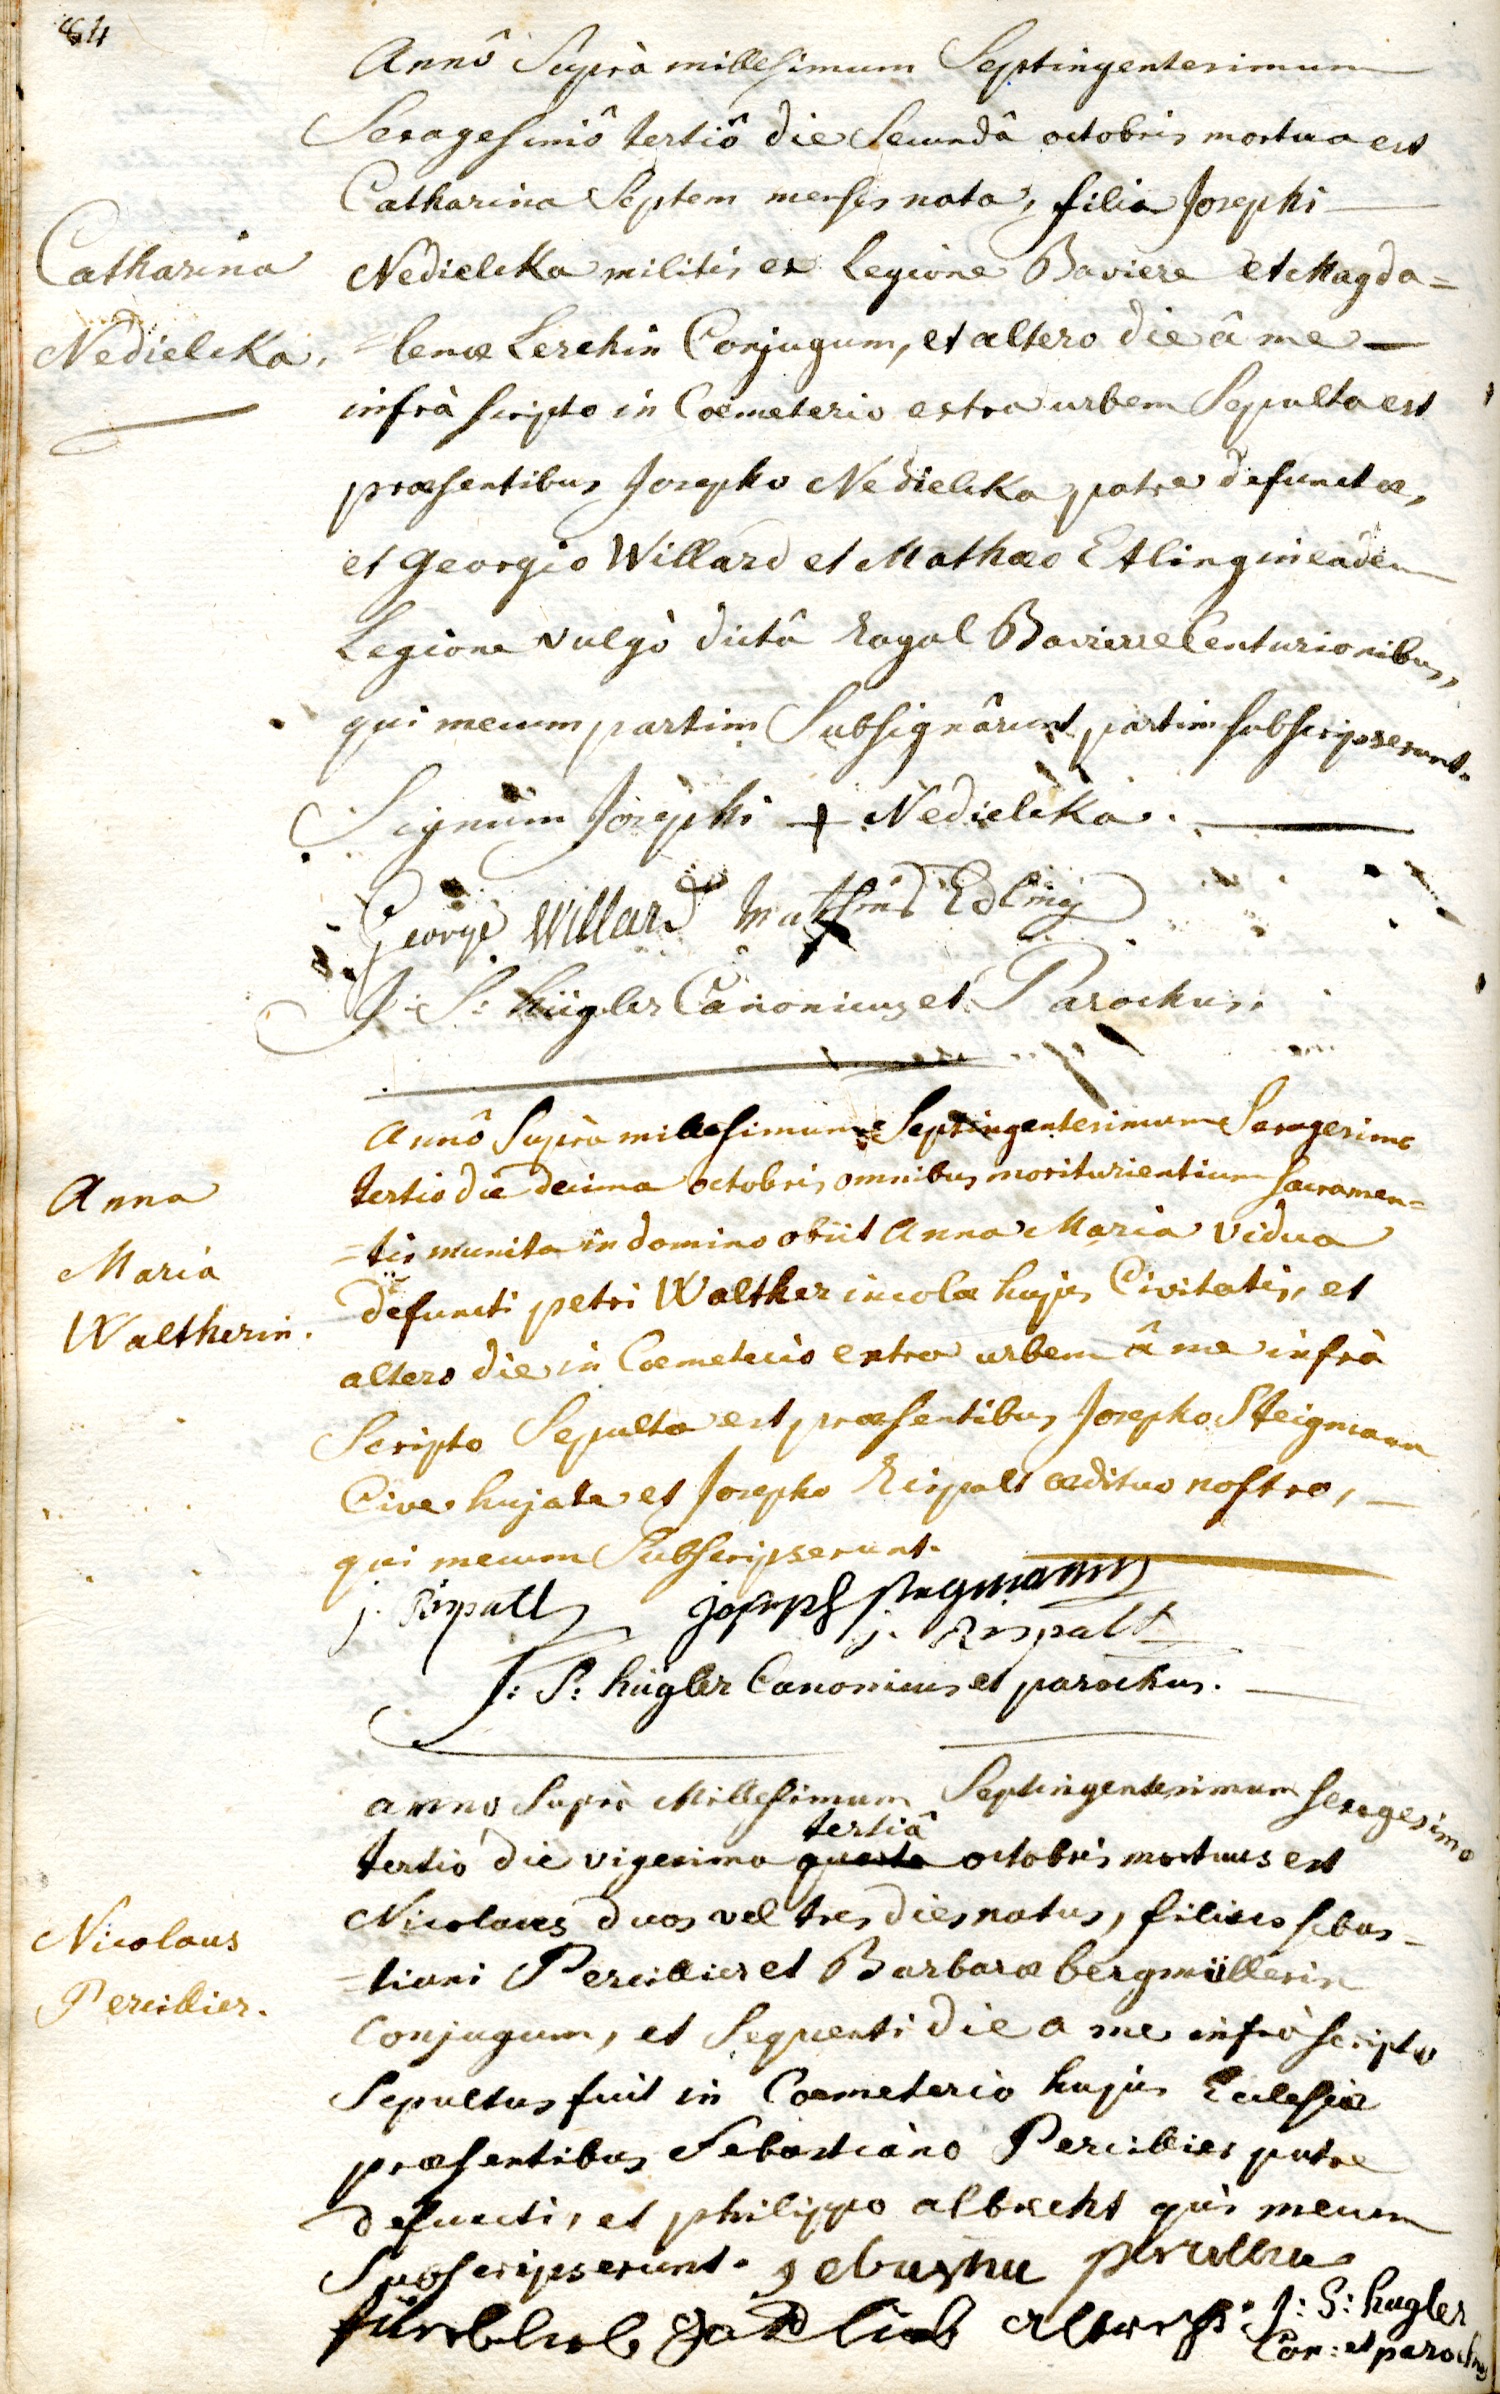 84
Annô Suprà millesimum Septingentesimum
Sexagesimô tertiô die Secundâ octobris mortua est
Catharina Septem menses nata, filia Josephi
Catharina
Nedielcka.
Nedielcka militis ex Legione Baviere et Magda=
=lenæ Lerchin Conjugum, et altero die â me
infrà scripto in Coemeterio extra urbem Sepulta est
præsentibus Josepho Nedielcka patre defunctæ,
et Georgio Willard et Mathæo Etling in eadem
Legione vulgò dictâ Royal Bavierre Centurionibus,
qui mecum partim Subsignârunt partim subscripserunt.
Signum Josephi + Nedielcka.
George Willard Mathius Edling
J: S: hügler Canonicus et Parochus.
Annô Suprà millesimum Septingentesimum Sexagesimo
Anna
Maria
Waltherin.
tertio die decima octobris omnibus moriturientium sacramen=
=tis munita in domino obiit Anna Maria vidua
defuncti petri Walther incolæ hujus Civitatis, et
altero die in Coemeterio extra urbem â me infrà
Scripto Sepulta est præsentibus Josepho Steigmann
Cive hujate et Josepho Rispalt ædituo nostro,
qui mecum Subscripserunt.
j. Rispalt joseph stegmann
j. Rispalt
J: S: hügler Canonicus et parochus.
anno Suprà Millesimum Septingentesimum sexagesimo
tertiâ
tertiò die vigesima quarta octobris mortuus est
Nicolaus
Percillier.
Nicolaus duos vel tres dies natus, filius sebas=
=tiani Percillier et Barbaræ bergmüllerin
Conjugum, et Sequenti die a me infrà scripto
Sepultus fuit in Coemeterio hujus Ecclesiæ
præsentibus Sebastiano Percillier patre
defuncti, et philippo albrecht qui mecum
Subscripserunt.
J: S: hugler
Can: et parochus